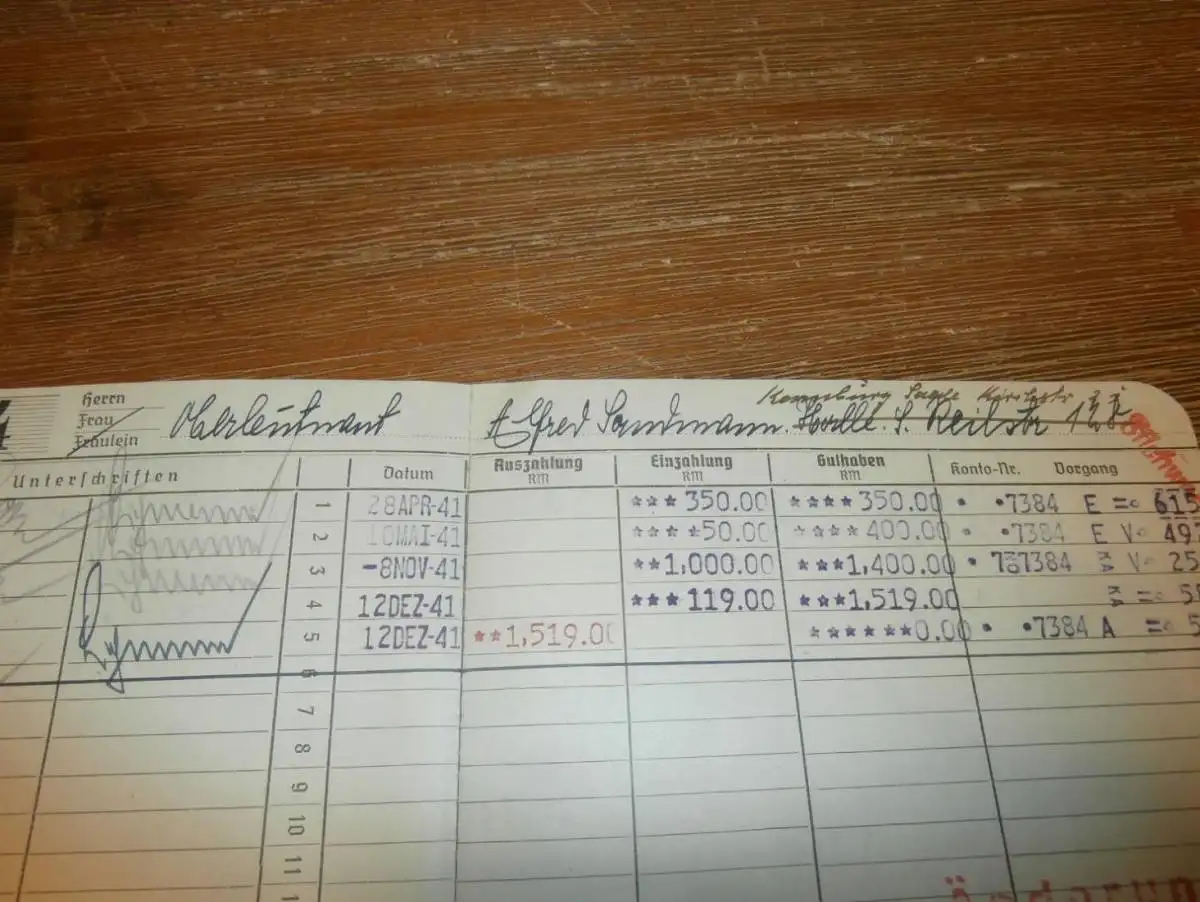 Herrn
Frau
Fräulein
Oberleutnant Alfred Sandmann. Halle. S. Reilstr 128
Unterschriften Datum Auszahlung RM Einzahlung RM Guthaben RM Konto-Nr. Vorgang
1 28APR-41 ***350.00 ****350.00 • •7384 E =
2 10MAI-41 ***50.00 ****400.00 • •7384 E V
3 -8NOV-41 **1,000.00 ***1,400.00 KA V
4 12DEZ-41 ***119.00 ***1,519.00 KA =
5 12DEZ-41 **1,519.00 ******0.00 • •7384 A =
6
7
8
9
10
11